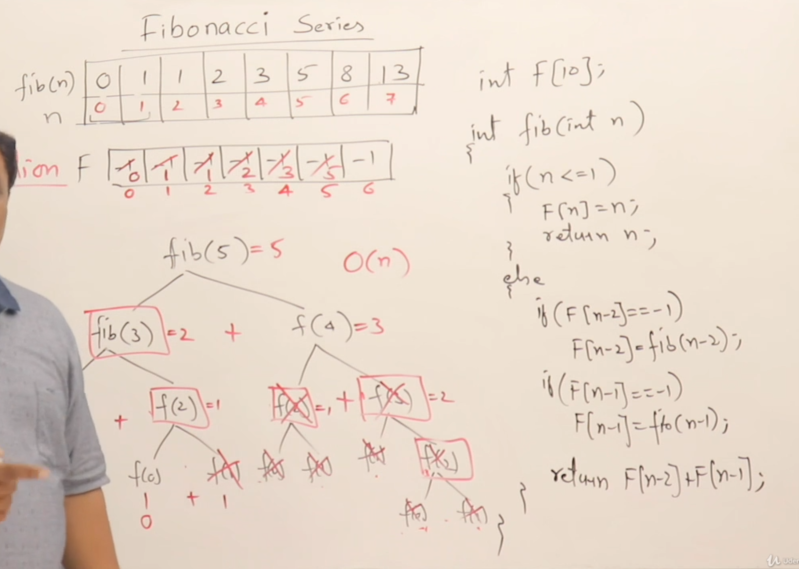 Fibonacci Series
fib(n) 0 1 1 2 3 5 8 13
n 0 1 2 3 4 5 6 7
F -1 -1 -1 -1 -1 -1 -1
0 1 1 2 3 5
0 1 2 3 4 5 6
fib(5)=5 O(n)
fib(3)=2 + f(4)=3
+ f(2)=1 =1 + f(3)=2
f(0) + f(1)
0 1
int F[10];
int fib(int n)
{
if(n<=1)
{
F[n]=n;
return n;
}
else
{
if(F[n-2]==-1)
F[n-2]=fib(n-2);
if(F[n-1]==-1)
F[n-1]=fib(n-1);
return F[n-2]+F[n-1];
}
}